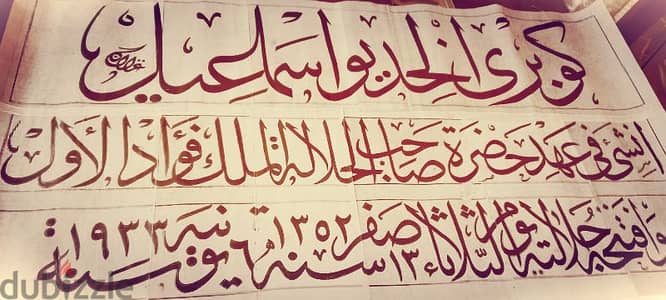 كوبرى الخديو اسماعيل
انشئ فى عهد حضرة صاحب الجلالة الملك فؤاد الأول
وافتتحه جلالته يوم الثلاثاء ١٣ صفر سنة ١٣٥٢ ٦ يونية سنة ١٩٣٣
dubizzle